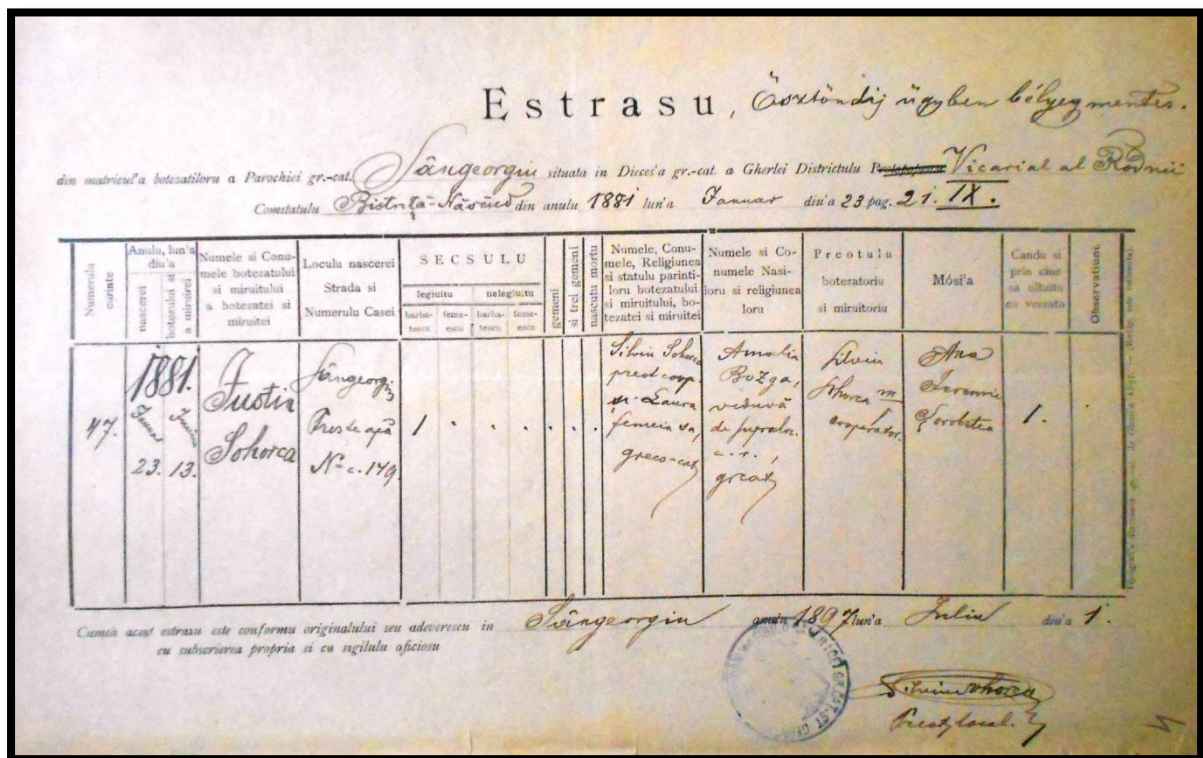 Estrasu, Ösztöndij ügyben bélyegmentes.
din matricul'a botezatiloru a Parochiei gr.-cat. Sângeorgiu situata in Dieces'a gr.-cat. a Gherlei Districtulu Vicarial al Rodnii
Comitatulu Bistriţă-Năsăud din anulu 1881 lun'a Januar diu'a 23 pag. 21. IX.
Numerulu curinte
Anulu, lun'a
diu'a
nascerei
botezului si
a miruirei
Numele si Conu-
mele botezatului
si miruitului
a botezatei si
miruitei
Loculu nascerei
Strada si
Numerulu Casei
SECSULU
legiuitu
nelegiuitu
barba-
tescu
feme-
escu
barba-
tescu
feme-
escu
gemeni
si trei gemeni
nascutu mortu
Numele, Conu-
mele, Religiunea
si statulu parinti-
loru botezatului
si miruitului, bo-
tezatei si miruitei
Numele si Co-
numele Nasi-
loru si religiunea
loru
Preotulu
botezatoriu
si miruitoriu
Mósi'a
Candu si
prin cine
sa oltuitu
cu versatu
Observatiuni.
47.
1881.
23.
13.
Justin
Sohorca
Sângeorgiu
Preste apă
N-c. 149.
1
Silviu Sohorca
preot coop.
și Laura
femeia sa,
greco-cat.
Amalia
Bozga,
veduvă
de
c. r.,
grcat
Silviu
Sohorca m
cooperator.
Ana
Ieremie
1.
Cumca acest estrasu este conformu originalului seu adeverescu in Sângeorgiu anulu 1897 lun'a Juliu diu'a 1.
cu subscrierea propria si cu sigilulu oficiosu
Silviu Sohorca
Preot local.